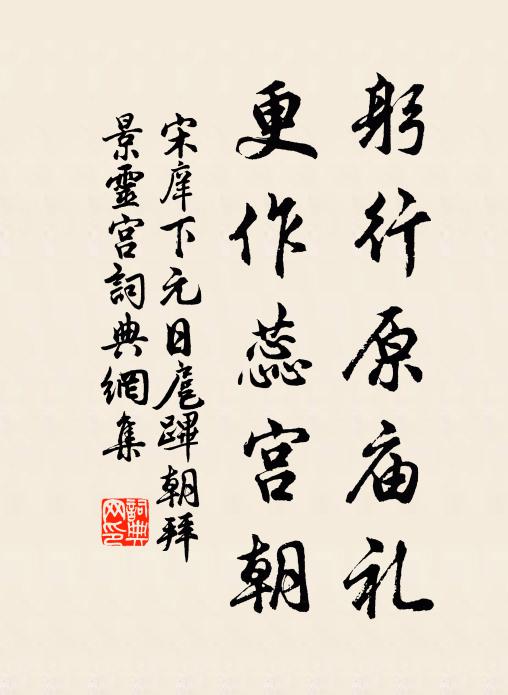 躬行原庙礼
更作蕊宫朝
宋庠下元日扈蹕朝拜
景靈宮詞典網集
詞典网印